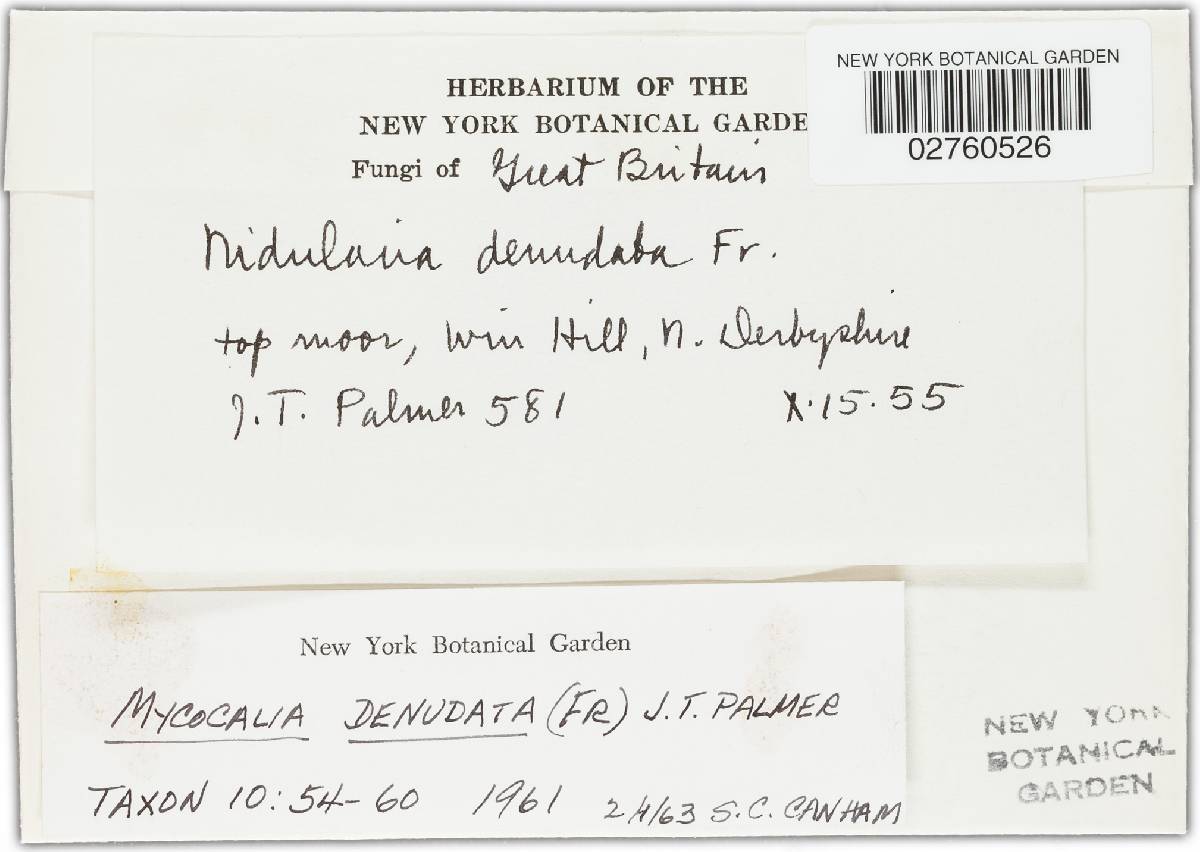 NEW YORK BOTANICAL GARDEN
02760526
HERBARIUM OF THE
NEW YORK BOTANICAL GARDE
Fungi of Great Britain
Nidularia denudata Fr.
top moor, Win Hill, N. Derbyshire
J.T. Palmer 581 X.15.55
New York Botanical Garden
MYCOCALIA DENUDATA (FR) J.T. PALMER
TAXON 10:54-60 1961 2/4/63 S.C. CANHAM
NEW YORK
BOTANICAL
GARDEN